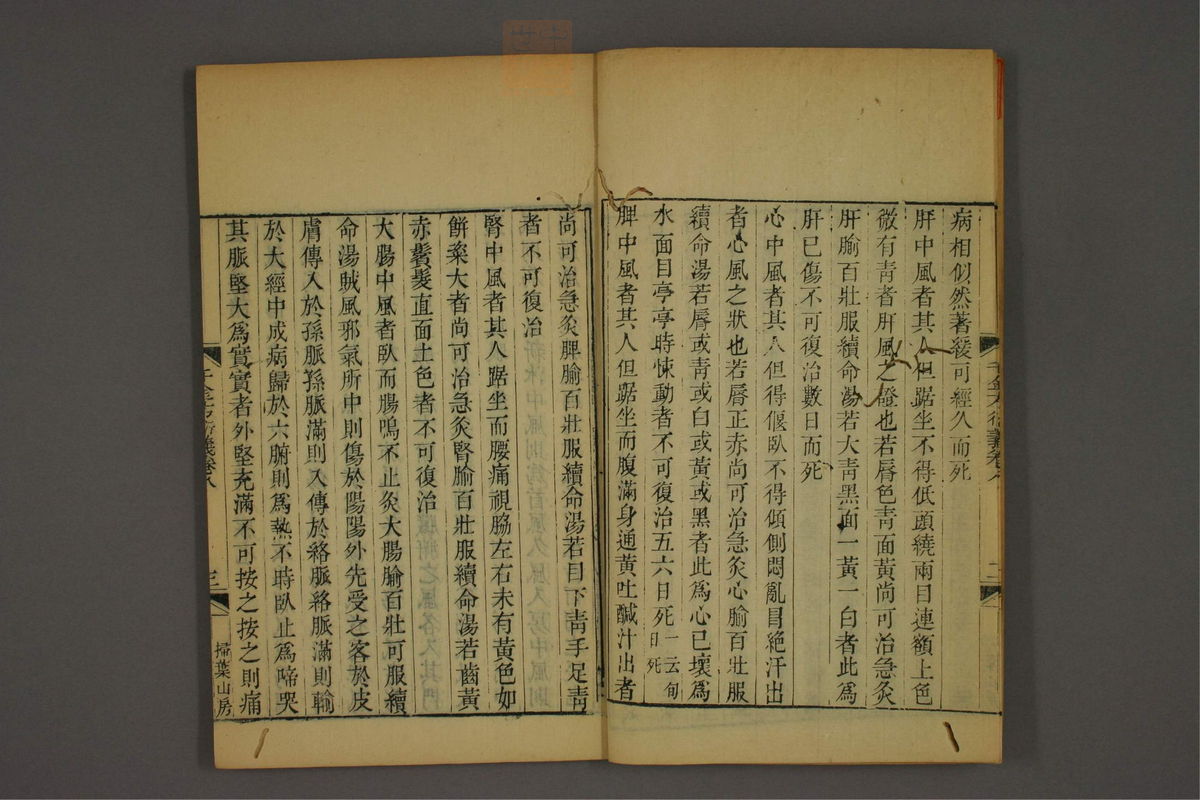 病相似然著緩可經久而死
肝中風者其人但踞坐不得低頭繞兩目連額上色
微有青者肝風之證也若唇色青面黃尚可治急灸
肝腧百壯服續命湯若大青黑面一黃一白者此爲
肝已傷不可復治數日而死
心中風者其人但得偃臥不得傾側悶亂冒絕汗出
者心風之狀也若唇正赤尚可治急灸心腧百壯服
續命湯若唇或青或白或黃或黑者此爲心已壞爲
水面目亭亭時悚動者不可復治五六日死一云旬日死
脾中風者其人但踞坐而腹滿身通黃吐鹹汁出者
千金方衍義卷八
二
尚可治急灸脾腧百壯服續命湯若目下青手足青
者不可復治
腎中風者其人踞坐而腰痛視脇左右未有黃色如
餅粢大者尚可治急灸腎腧百壯服續命湯若齒黃
赤鬢髮直面土色者不可復治
大腸中風者臥而腸鳴不止灸大腸腧百壯可服續
命湯賊風邪氣所中則傷於陽陽外先受之客於皮
膚傳入於孫脈孫脈滿則入傳於絡脈絡脈滿則輸
於大經中成病歸於六腑則爲熱不時臥止爲啼哭
其脈堅大爲實實者外堅充滿不可按之按之則痛
千金方衍義卷八
三
掃葉山房